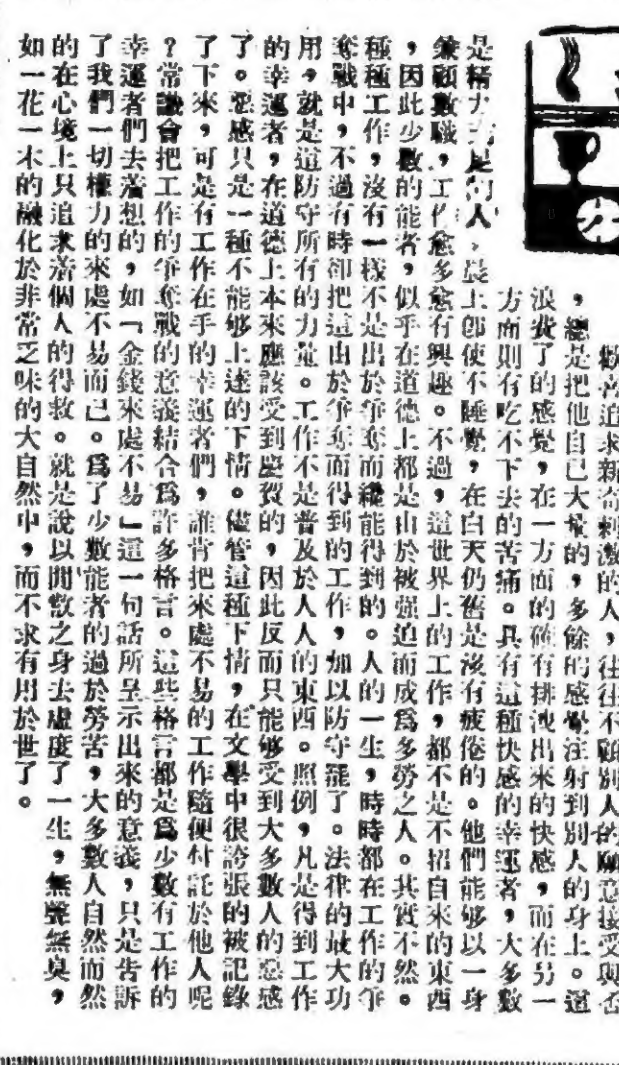 歡喜追求新奇刺激的人，往往不顧別人的願意接受與否
，總是把他自己大量的，多餘的感覺注射到別人的身上。這
浪費了的感覺，在一方面的確有排洩出來的快感，而在另一
方面則有吃不下去的苦痛。具有這種快感的幸運者，大多數
是精力充足的人，晨上卽使不睡覺，在白天仍舊是沒有疲倦的。他們能够以一身
兼顧數職，工作愈多愈有興趣。不過，這世界上的工作，都不是不招自來的東西
，因此少數的能者，似乎在道德上都是由於被强迫而成爲多勞之人。其實不然。
種種工作，沒有一樣不是出於爭奪而纔能得到的。人的一生，時時都在工作的爭
奪戰中，不過有時卻把這由於爭奪而得到的工作，加以防守罷了。法律的最大功
用，就是這防守所有的力量。工作不是普及於人人的東西。照例，凡是得到工作
的幸運者，在道德上本來應該受到慶賀的，因此反而只能够受到大多數人的惡感
了。惡感只是一種不能够上達的下情。儘管這種下情，在文學中很誇張的被記錄
了下來，可是有工作在手的幸運者們，誰肯把來處不易的工作隨便付託於他人呢
？常識會把工作的爭奪戰的意義結合爲許多格言。這些格言都是爲少數有工作的
幸運者們去着想的，如「金錢來處不易」這一句話所呈示出來的意義，只是告訴
了我們一切權力的來處不易而已。爲了少數能者的過於勞苦，大多數人自然而然
的在心境上只追求着個人的得救。就是說以閒散之身去虛度了一生，無聲無臭，
如一花一木的融化於非常乏味的大自然中，而不求有用於世了。